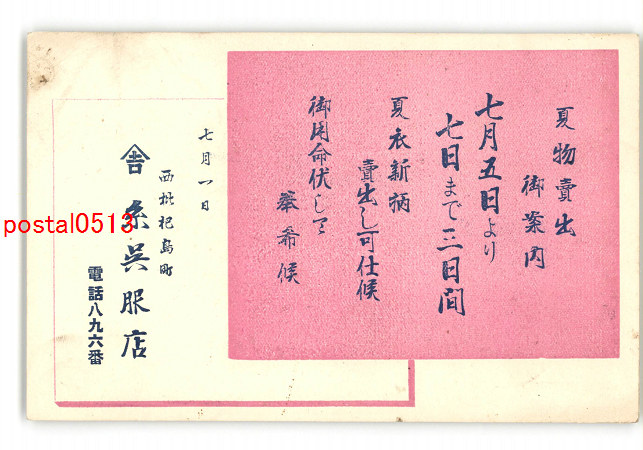 夏物賣出
御案内
七月五日より
七日まで三日間
夏衣新柄
賣出し可仕候
御用命伏して
奉希候
七月一日
西枇杷島町
糸呉服店
電話八九六番
postal0513